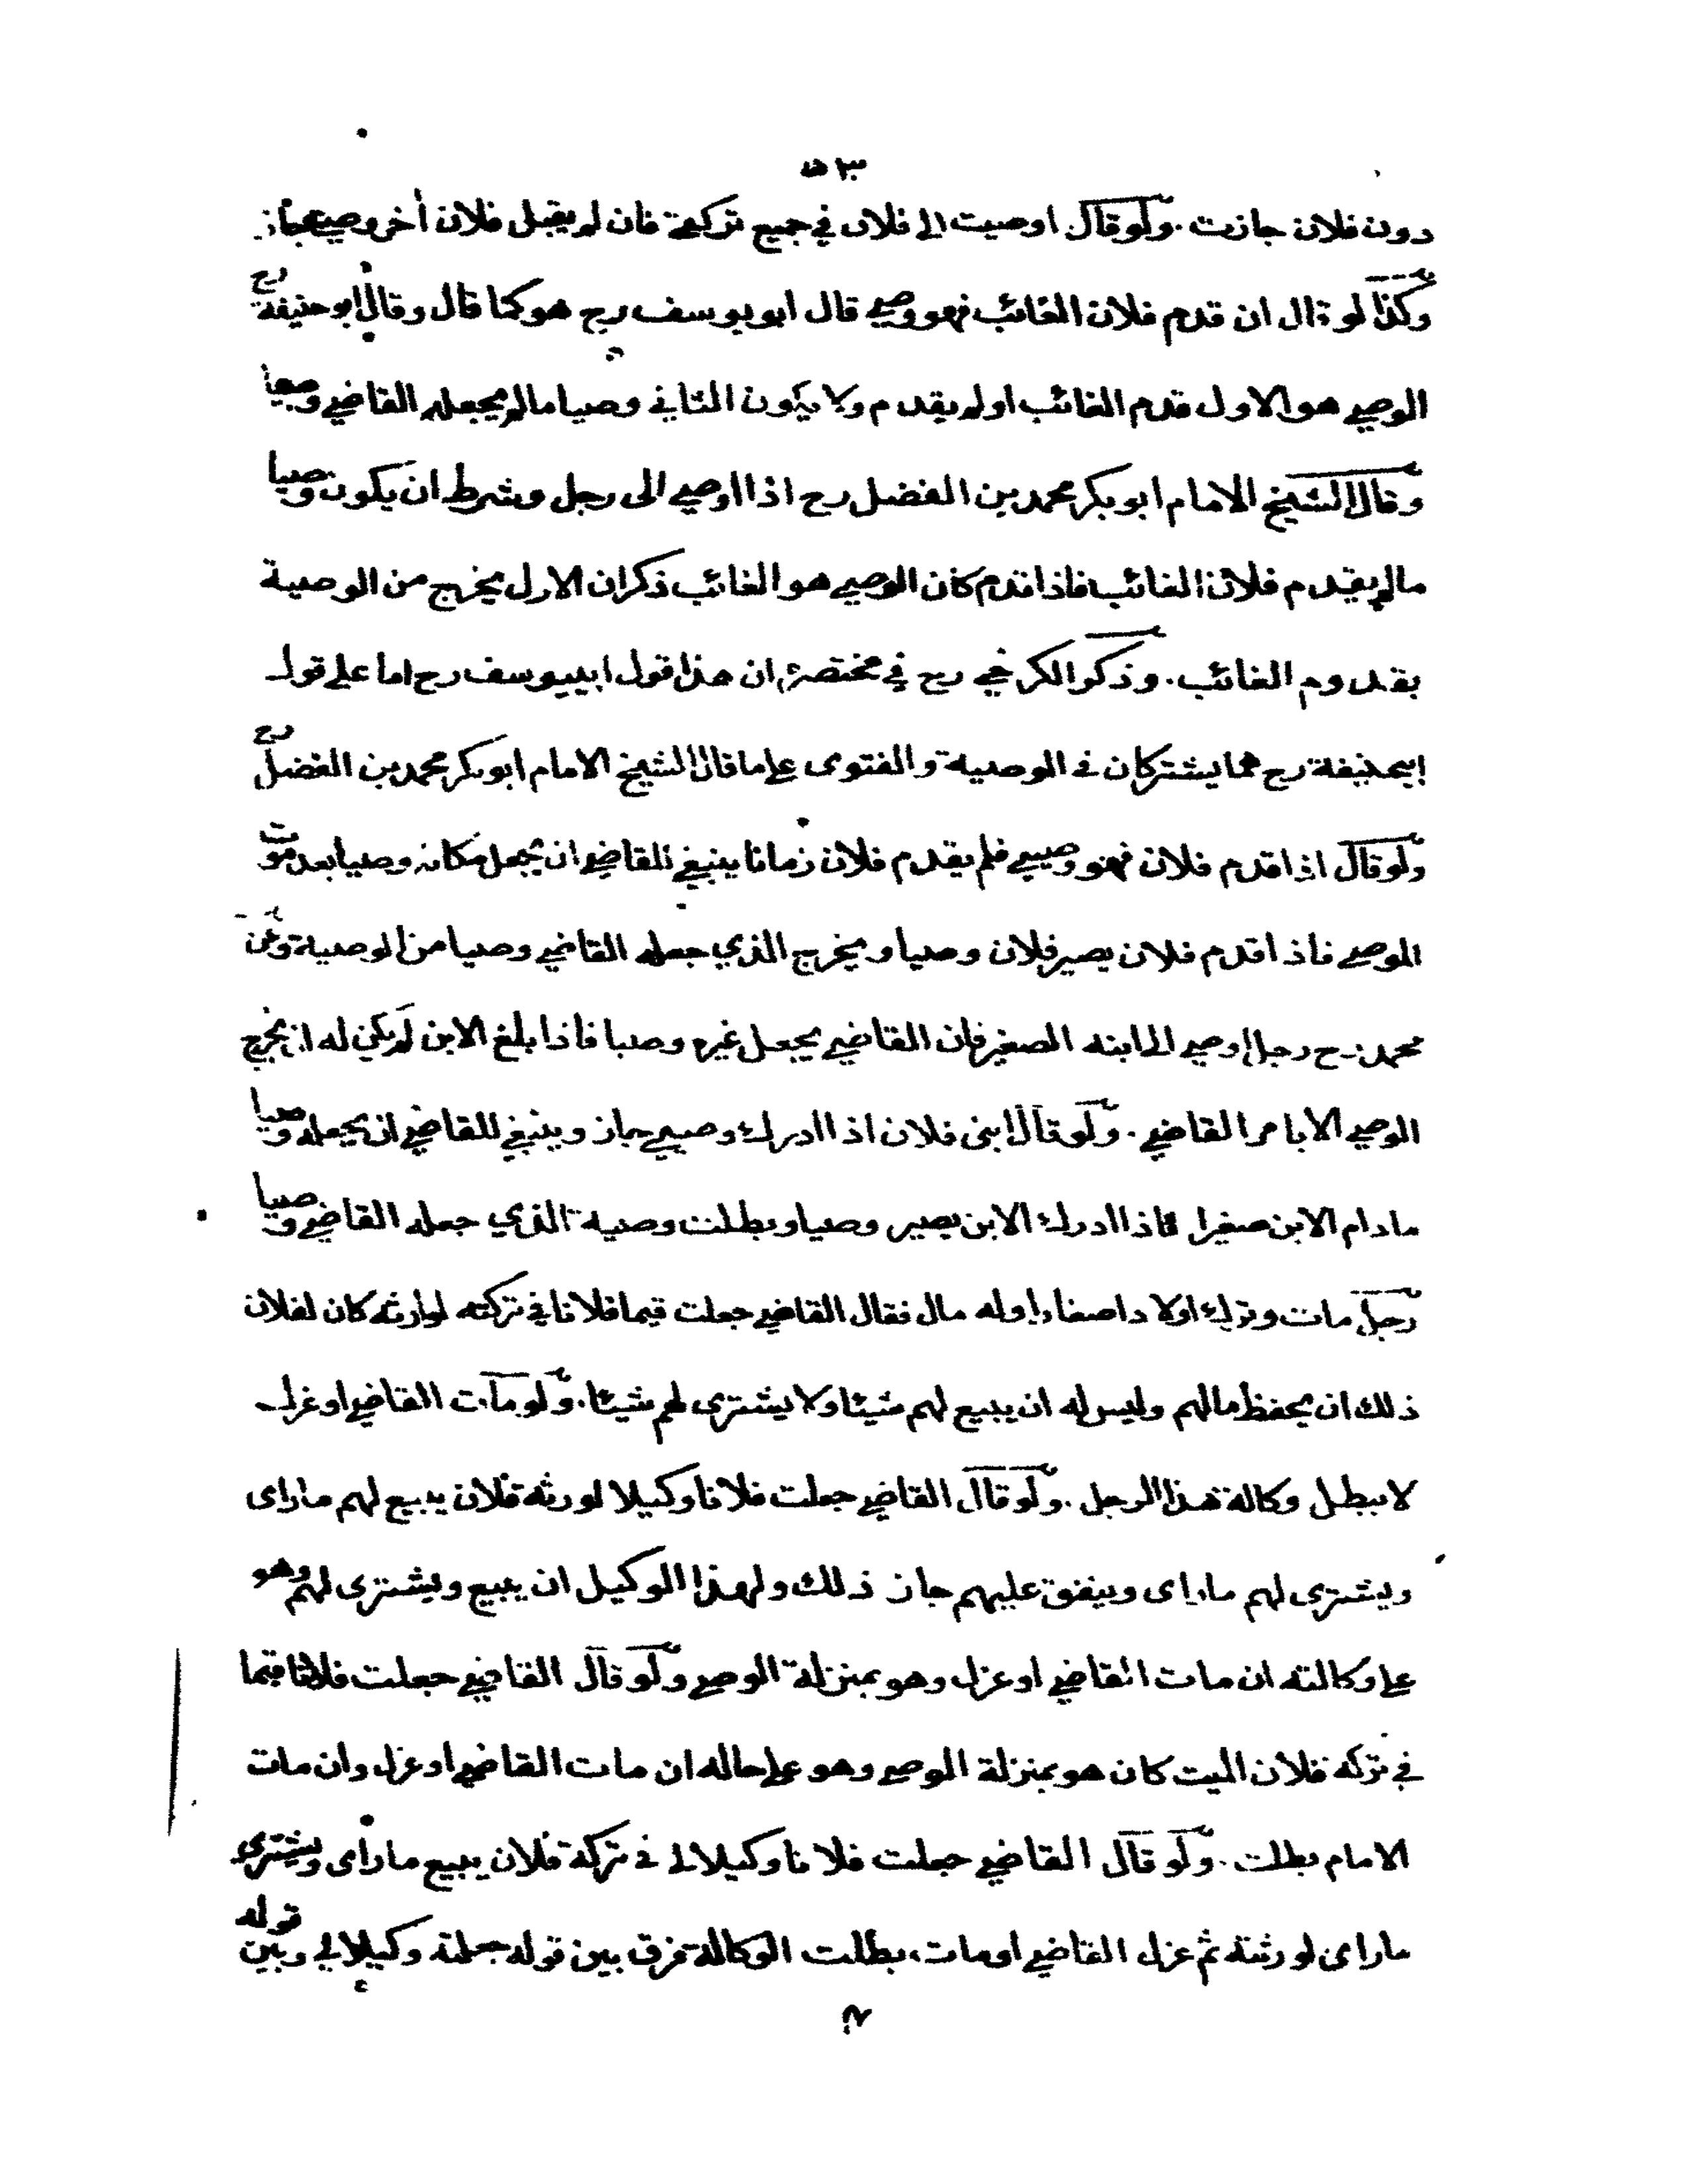 ٥٣
دون فلان جازت . ولو قال اوصيت الى فلان في جميع تركتي فان لم يقبل فلان آخر وصيي جاز
وكذا لو قال ان قدم فلان الغائب فهو وصي قال ابو يوسف رح هو كما قال وقال ابو حنيفة رح
الوصي هو الاول قدم الغائب او لم يقدم ولا يكون الثاني وصيا مالم يجعله القاضي وصيا
وقال الشيخ الامام ابو بكر محمد بن الفضل رح اذا اوصى الى رجل وشرط ان يكون وصيا
مالم يقدم فلان الغائب فاذا قدم كان الوصي هو الغائب ذكر ان الاول يخرج من الوصية
بقدوم الغائب . وذكر الكرخي رح في مختصره ان هذا قول ابييوسف رح اما على قول
ابيحنيفة رح هما يشتركان في الوصية والفتوى على ما قال الشيخ الامام ابو بكر محمد بن الفضل رح
ولو قال اذا قدم فلان فهو وصيي فلم يقدم فلان زمانا ينبغي للقاضي ان يجعل مكانه وصيا بعد موت
الموصي فاذا قدم فلان يصير فلان وصيا ويخرج الذي جعله القاضي وصيا من الوصية وعن
محمد رح رجل اوصى الى ابنه الصغير فان القاضي يجعل غيره وصيا فاذا بلغ الابن لم يكن له ان يخرج
الوصي الا بامر القاضي . ولو قال ابنى فلان اذا ادرك وصيي جاز وينبغي للقاضي ان يجعله وصيا
مادام الابن صغيرا فاذا ادرك الابن يصير وصيا وبطلت وصية الذي جعله القاضي وصيا
رجل مات وترك اولادا صغارا وله مال فقال القاضي جعلت قيما فلانا في تركته لوارثه كان لفلان
ذلك ان يحفظ مالهم وليس له ان يبيع لهم شيئا ولا يشترى لهم شيئا . ولو مات القاضي او عزل
لا يبطل وكالة هذا الرجل . ولو قال القاضي جعلت فلانا وكيلا لورثة فلان يبيع لهم ماراى
ويشترى لهم ماراى وينفق عليهم جاز ذلك ولهذا الوكيل ان يبيع ويشترى لهم وهو
على وكالته ان مات القاضي او عزل وهو بمنزلة الوصي ولو قال القاضي جعلت فلانا قيما
في تركة فلان الميت كان هو بمنزلة الوصي وهو على حاله ان مات القاضي او عزل وان مات
الامام بطلت . ولو قال القاضي جعلت فلانا وكيلا لي في تركة فلان يبيع ماراى ويشترى
ماراى لورثته ثم عزل القاضي او مات بطلت الوكالة فرق بين قوله جعلته وكيلا لي وبين قوله